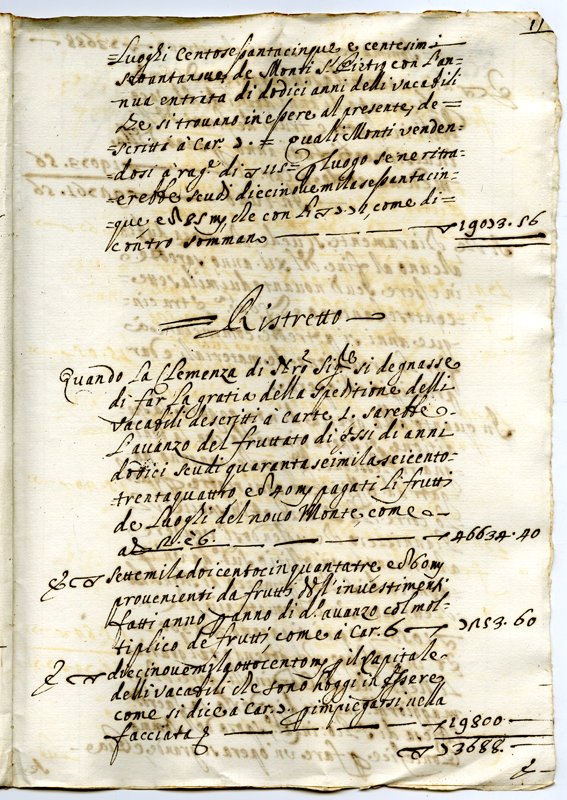 11
Luoghi Centosessantacinque e centesimi
settantanove de Monti S. Pietro con l'an=
nua entrata di dodici anni delli vacabili
che si trovano in essere al presente, de=
=scritta à Car. 2. quali Monti venden=
dosi à rag.e di 115 luogo se ne ritra=
=erebbe scudi diecinovemilasessantacin=
=que, e 85 m, che con li come di=
contro sommano — — — 19023.56
Ristretto
Quando la Clemenza di N.ro Sig.re si degnasse
di far la gratia della speditione delli
vacabili descritti à Carte 1. sarebbe
l'avanzo del fruttato di essi di anni
dodici scudi quarantaseimilaseicento=
=trentaquattro, e 40 m, pagati li frutti
de Luoghi del novo Monte, come
a 6. — — — 46634.40
E settemiladoicentocinquantatre, e 60 m
provenienti da frutti dell'investimenti
fatti anno p anno di d.o avanzo col mol=
tiplico de frutti, come à Car. 6 — 7253.60
E diecinovemilaottocento m, p il Capitale
delli vacabili che sono hoggi in essere
come si dice à Car. 2. p impiegarsi nella
facciata — — — 19800
73688